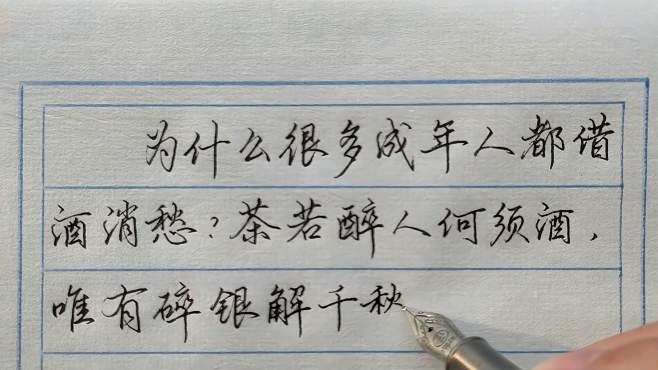 为什么很多成年人都借
酒消愁?茶若醉人何须酒,
唯有碎银解千秋